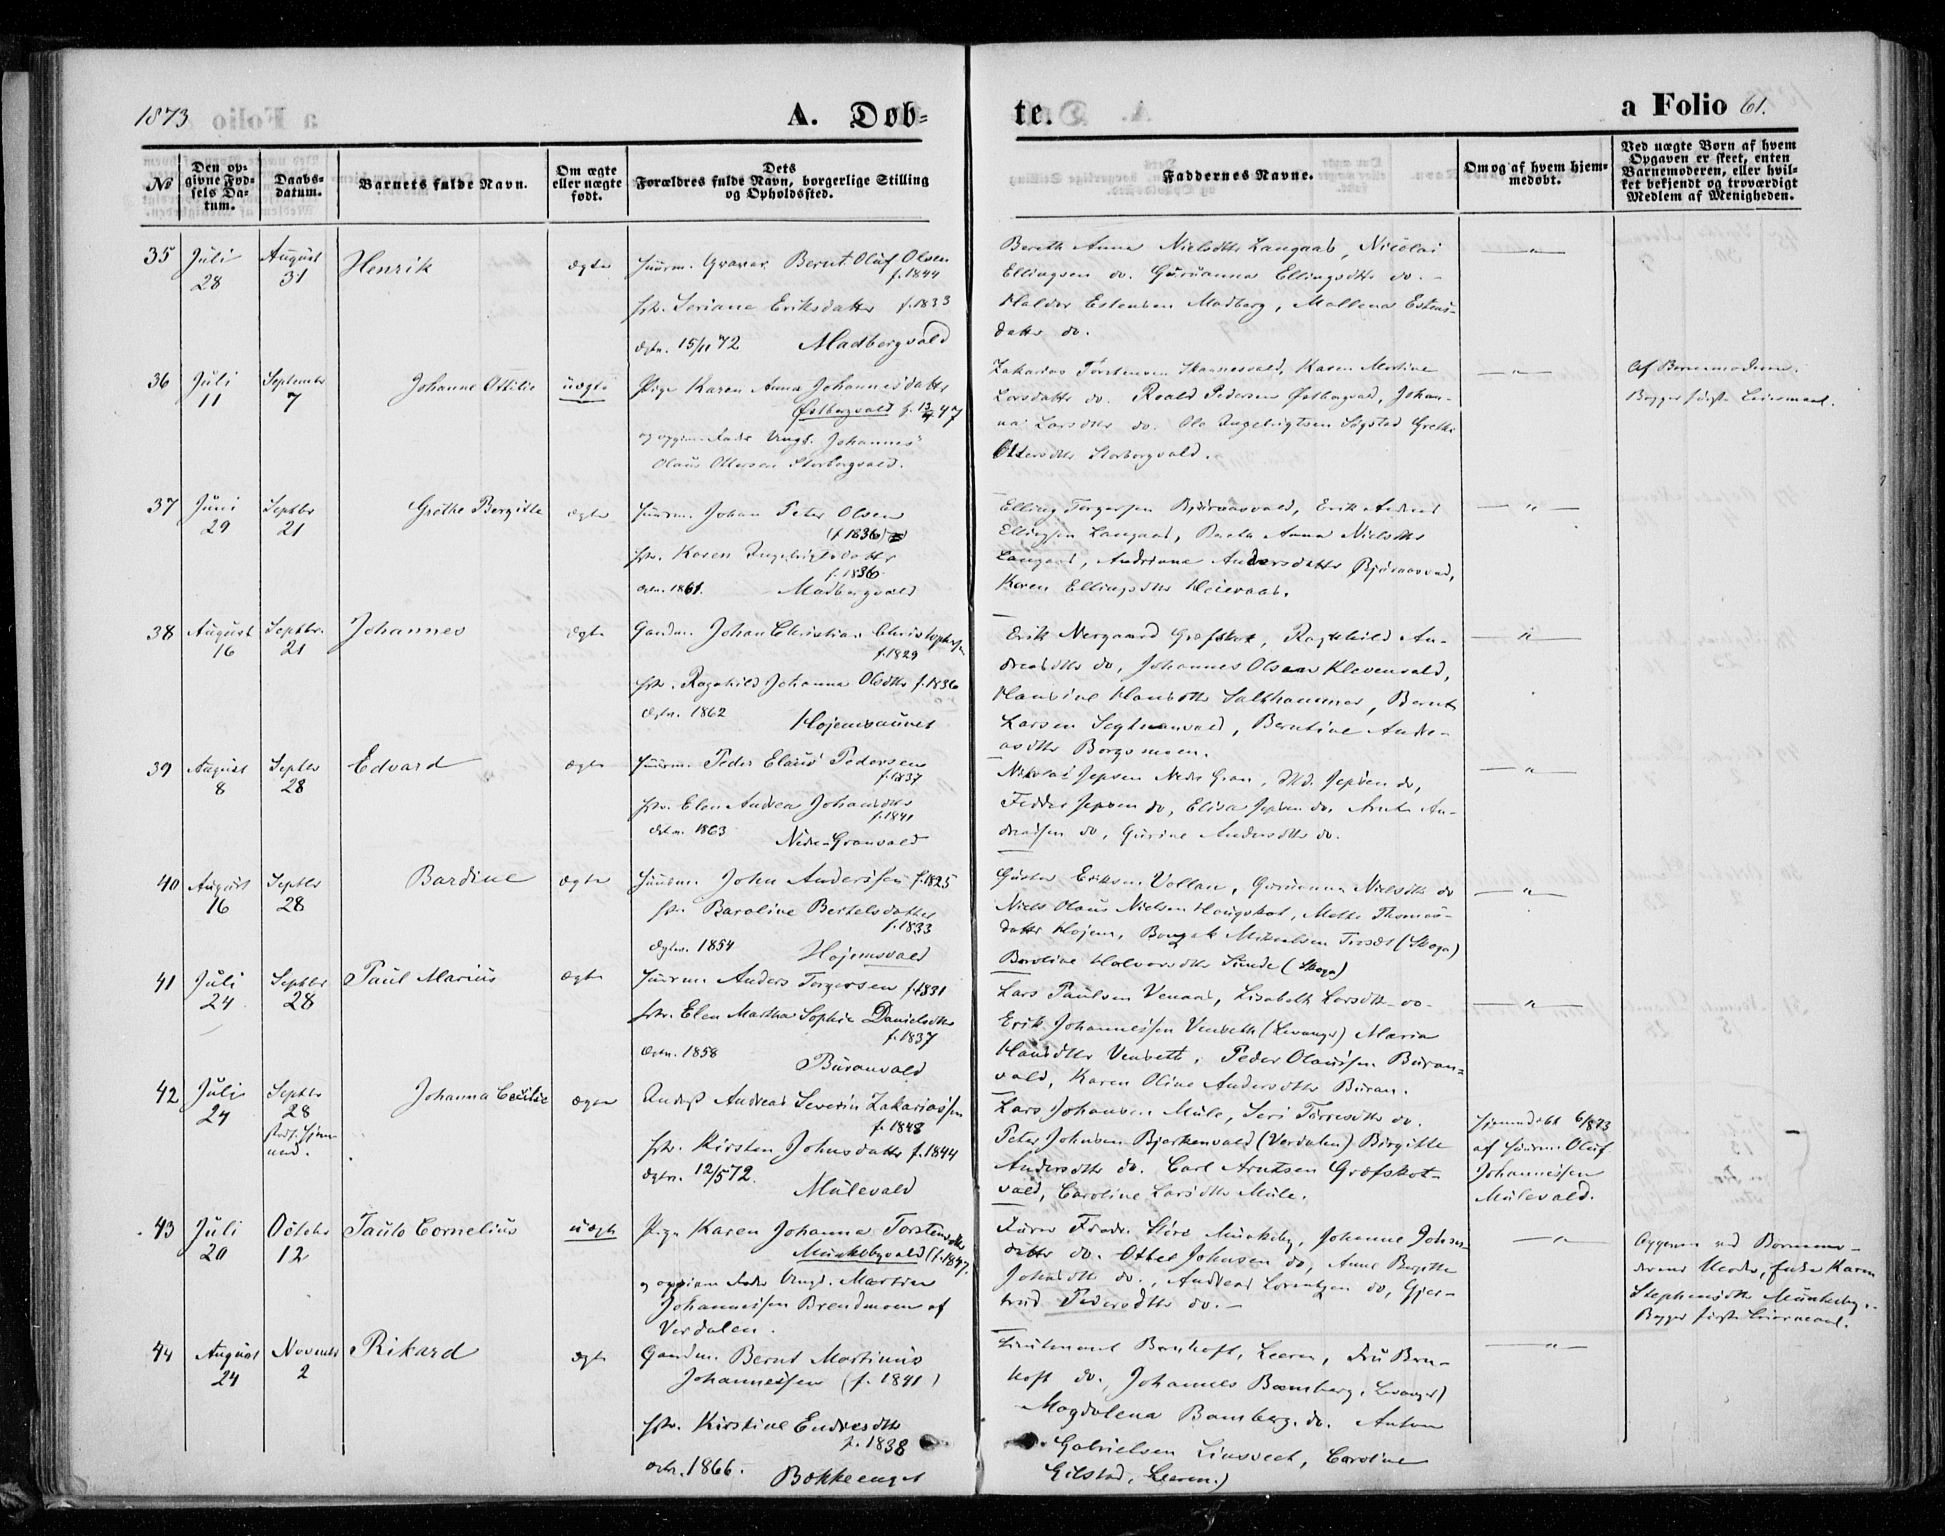 1873
A. Døb-
te.
a Folio 61.
No
Den op-
givne Fød-
sels Da-
tum.
Daabs-
datum.
Barnets fulde Navn.
Om ægte
eller uægte
født.
Dets
Forældres fulde Navn, borgerlige Stilling
og Opholdssted.
Faddernes Navne.
Om og af hvem hjem-
medøbt.
Ved uægte Børn af hvem
Opgaven er skeet, enten
Barnemoderen, eller hvil-
ket bekjendt og troværdigt
Medlem af Menigheden.
35 Juli 28 August 31 Henrik ægte
Huusm. Gravar Bernt Oluf Olsen
f. 1844
Seriana Eriksdatter f. 1833
15/11 72 Madbergvald
Bereth Anna Nielsdtr Langaas, Nicolai
Ellingsen do. Gurianna Ellingsdtr do. -
Haldor Estensen Madberg, Mallena Estens-
datter do.
36 Juli 11 September 7 Johanne Ottilie uægte
Pige Karen Anna Johannesdatter
Østbergvald f. 47
og opgiven Fader Ungk. Johannes
Olaus Ottersen Storborgvald.
Zakarias Torstensen, Karen Martine
Larsdatter do. Roald Pedersen Østbergvald, Johan-
na Larsdtr do. Ole Ingebrigtsen Grethe
Ottersdtr Storborgvald.
Af Barnemoderen.
Begges første Leiermaal.
37 Juni 29 Septbr 21 Grethe Bergitte ægte
Huusm. Johan Peter Olsen
(f. 1836)
Karen Ingebrigtsdatter
f. 1836
1861. Madbergvald
Elling Torgersen, Erik Andreas
Ellingsen Langaas, Bereth Anna Nielsdtr
Langaas, Andriana Andersdatter
Karen Ellingsdtr
38 August 16 Septbr. 21 Johannes ægte
Gaardm. Johan Christian Christophersen
f. 1829
Ragnhild Johanna Olsdtr f. 1836
1862 Hojemsaunet
Erik Nergaard Græfskot, Ragnhild An-
dreasdtr do, Johannes Olsen Klevenvald,
Hansine Hansdtr Salthammer, Bernt
Larsen, Berntine Andre-
asdtr Borgsmoen.
39 August 8 Septbr 28 Edvard ægte
Huusm. Peder Elaus Pedersen
f. 1837
Elen Andrea Johansdtr
f. 1841
1863 Nedre-Granvald
Nikolai Jepsen Nedre Gran, Jepsen do,
Jepsen do, Elisa Jepsen do, An-
dreassen do, Gurine Andersdtr do.
40 August 16 Septbr 28 Bardine ægte
Huusm. John Anderssen f. 1825
Baroline Beritelsdatter
f. 1833
1854 Hojemsvald
Gustav Eriksen Vollan, Gurianna Nielsdtr do
Niels Olaus Nielsen Haugskot, Mette Thomas-
datter Hojem, Mikkelsen (Skogn)
Baroline Halvorsdtr Sunde (Skogn)
41 Juli 24 Septbr 28 Paul Marius ægte
Huusm. Anders Torgersen f. 1831
Elen Martha Sophie Danielsdtr
f. 1837
1858 Buranvald
Lars Paulsen Venaas, Lisabeth Larsdtr do.
Erik Johannessen Venseth (Levanger) Maria
Hansdtr Venseth, Peder Olaussen Buran-
vald, Karen Oline Andersdtr Buran.
42 Juli 24 Septbr 28 Johanna Cecilie ægte
Andreas Severin Zakariassen
f. 1848
Kirsten Johnsdatter f. 1844
12/5 72. Mulevald
Lars Johansen Mule, Seri Torresdtr do.
Peter Johnsen Bjerkenvald (Verdalen) Birgitte
Andersdtr do. Carl Arntsen Græfskot-
vald, Caroline Larsdtr Mule.
Hjemmedøbt 6/8 73
af Huusm. Oluf
Johannessen
Mulevald.
43 Juli 20 October 12 Paulo Cornelius uægte
Pige Karen Johanna Torstensdtr
Munkebyvald (f. 1847.
og opgiven Fader Ungk. Martin
Johannessen Brendmoen af
Verdalen.
Munkeby, Johanne Johns-
datter do. Otter Johnsen do, Anne Bergitte
Johnsdtr do., Andreas Lorentzen do, Gjer-
trud Pedersdtr do. -
Opgiven ved Barnemo-
derens Moder, Enke Karen
Stephensdtr Munkeby.
Begges første Leiermaal.
44 August 24 November 2 Rikard ægte
Gaardm. Bernt Martinus
Johannessen (f. 1841)
Kirstine Endresdtr
f. 1838
1866. Bakkeenget
Lieutenant Barnhoft, Leeren, Fru Barn-
hoft do., Johannes Bamberg, Levanger)
Magdalena Bamberg do. Anton
Gabrielsen, Caroline
Gilstad, Leeren.)